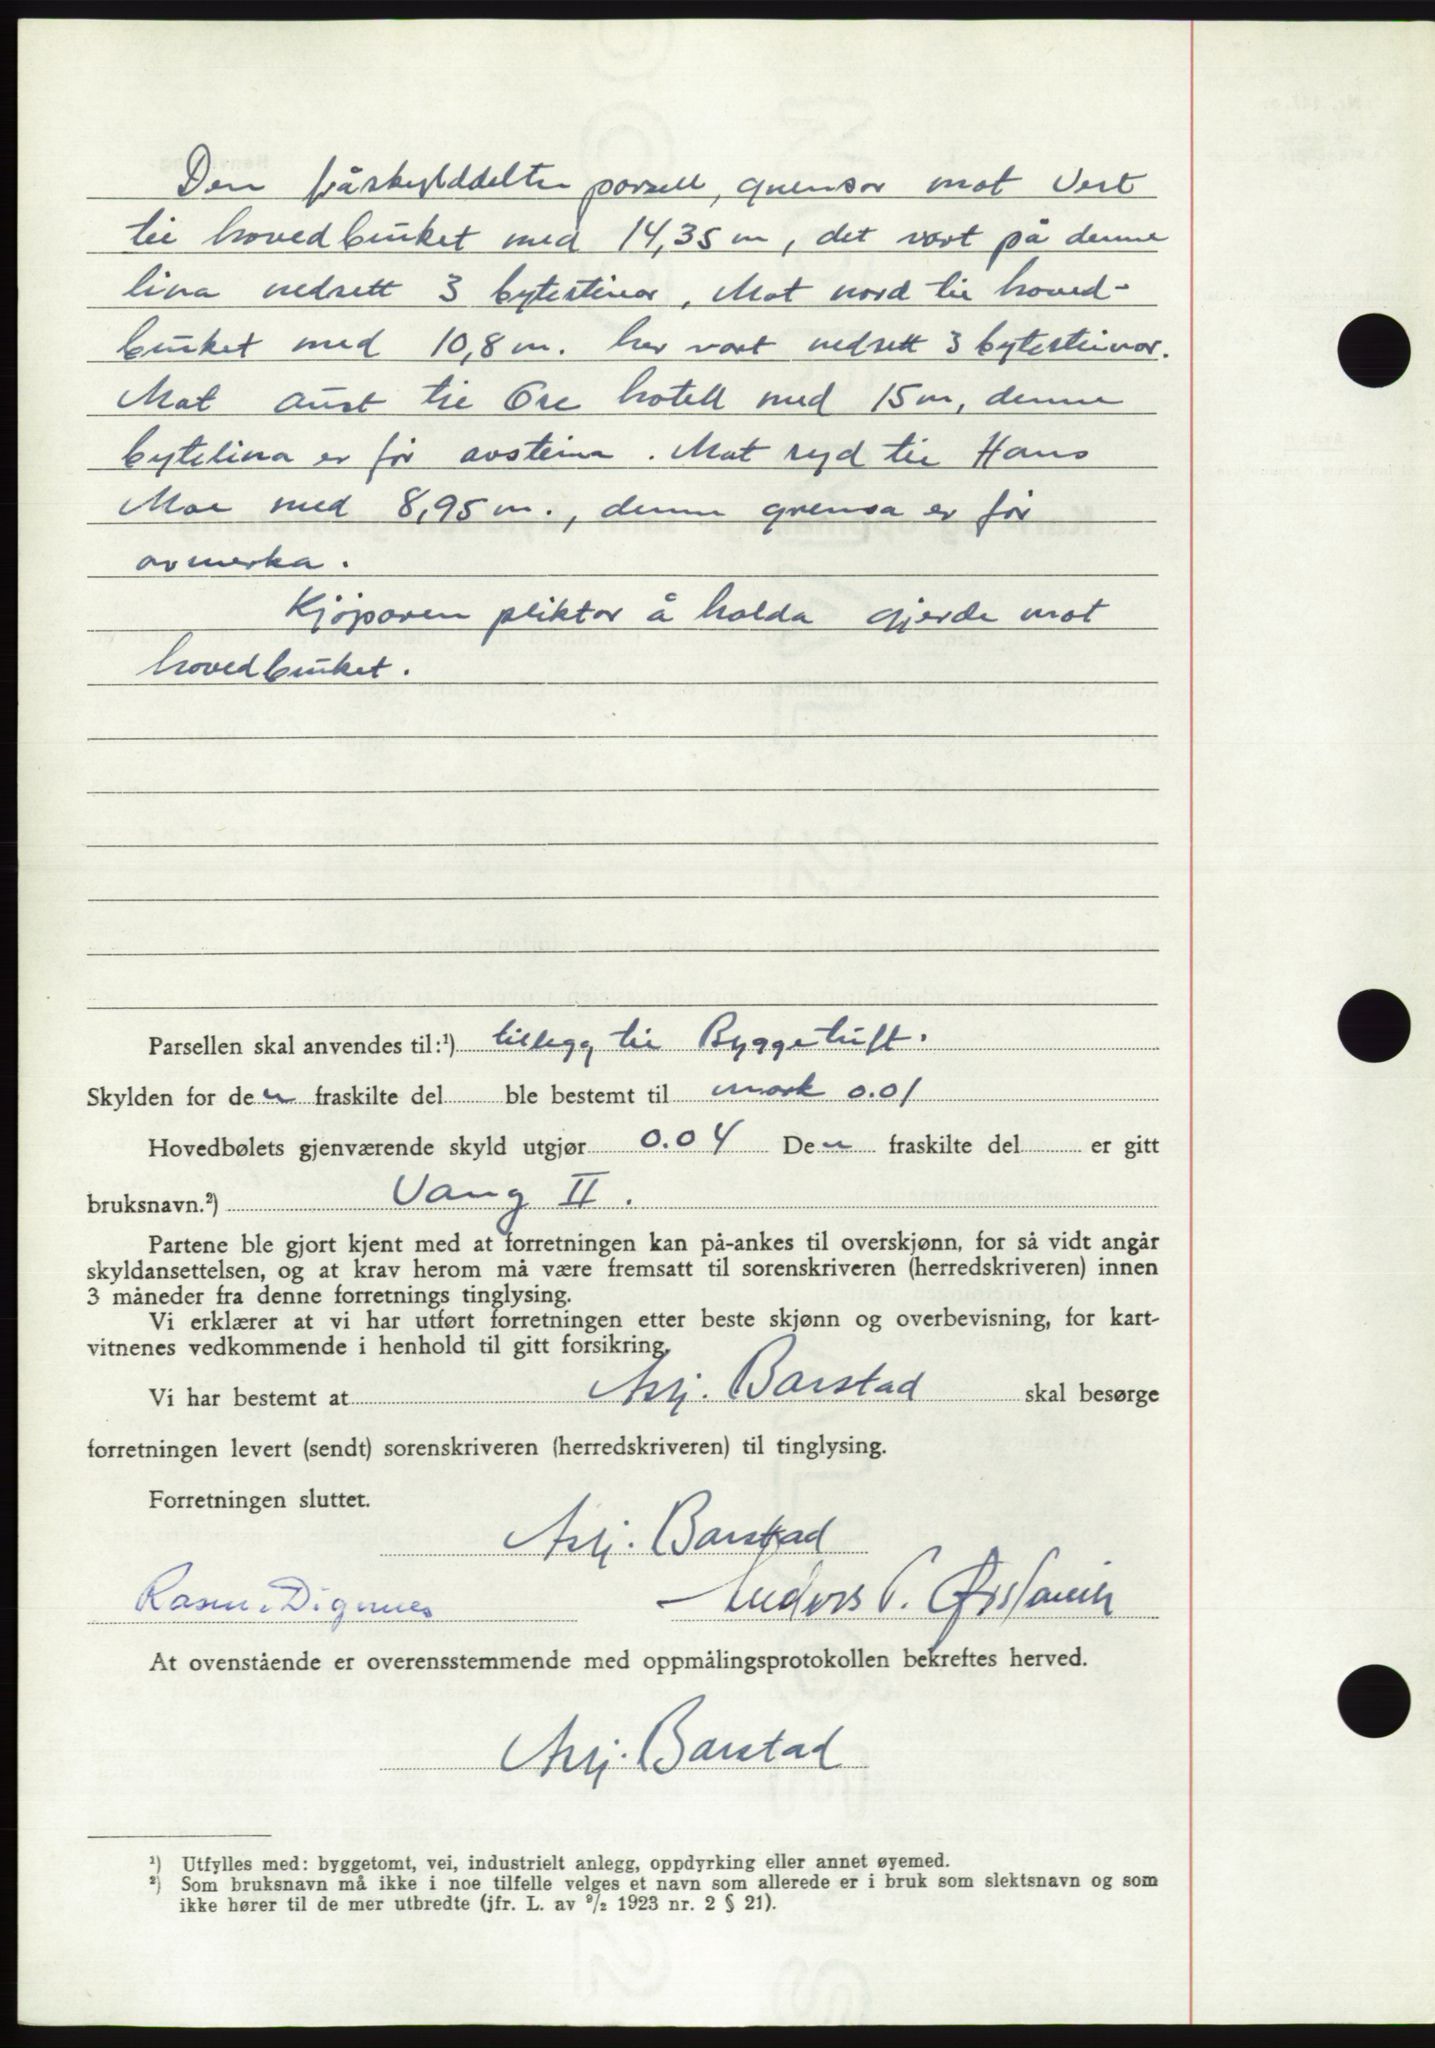 Den fråskylddelte parsell, grensar mot Vest
til hovedbruket med 14,35 m, det vart på denne
lina nedsett 3 bytesteinar. Mot nord til hoved-
bruket med 10,8 m. her vart nedsett 3 bytesteinar.
Mot aust til Øre hotell med 15 m, denne
bytelina er før avsteina. Mot syd til Hans
Moe med 8,95 m., denne grensa er før
avmerka.
Kjøparen pliktar å halda gjerde mot
hovedbruket.
Parsellen skal anvendes til:¹) tillegg til Byggetuft.
Skylden for den fraskilte del ble bestemt til mark 0.01
Hovedbølets gjenværende skyld utgjør 0.04 Den fraskilte del er gitt
bruksnavn.²) Vang II.
Partene ble gjort kjent med at forretningen kan på-ankes til overskjønn, for så vidt angår
skyldansettelsen, og at krav herom må være fremsatt til sorenskriveren (herredskriveren) innen
3 måneder fra denne forretnings tinglysing.
Vi erklærer at vi har utført forretningen etter beste skjønn og overbevisning, for kart-
vitnenes vedkommende i henhold til gitt forsikring.
Vi har bestemt at Asbj. Barstad skal besørge
forretningen levert (sendt) sorenskriveren (herredskriveren) til tinglysing.
Forretningen sluttet.
Asbj. Barstad
Rasm. Digernes Anders P. Ørstavik
At ovenstående er overensstemmende med oppmålingsprotokollen bekreftes herved.
Asbj. Barstad
¹) Utfylles med: byggetomt, vei, industrielt anlegg, oppdyrking eller annet øyemed.
²) Som bruksnavn må ikke i noe tilfelle velges et navn som allerede er i bruk som slektsnavn og som
ikke hører til de mer utbredte (jfr. L. av ⁹/₂ 1923 nr. 2 § 21).